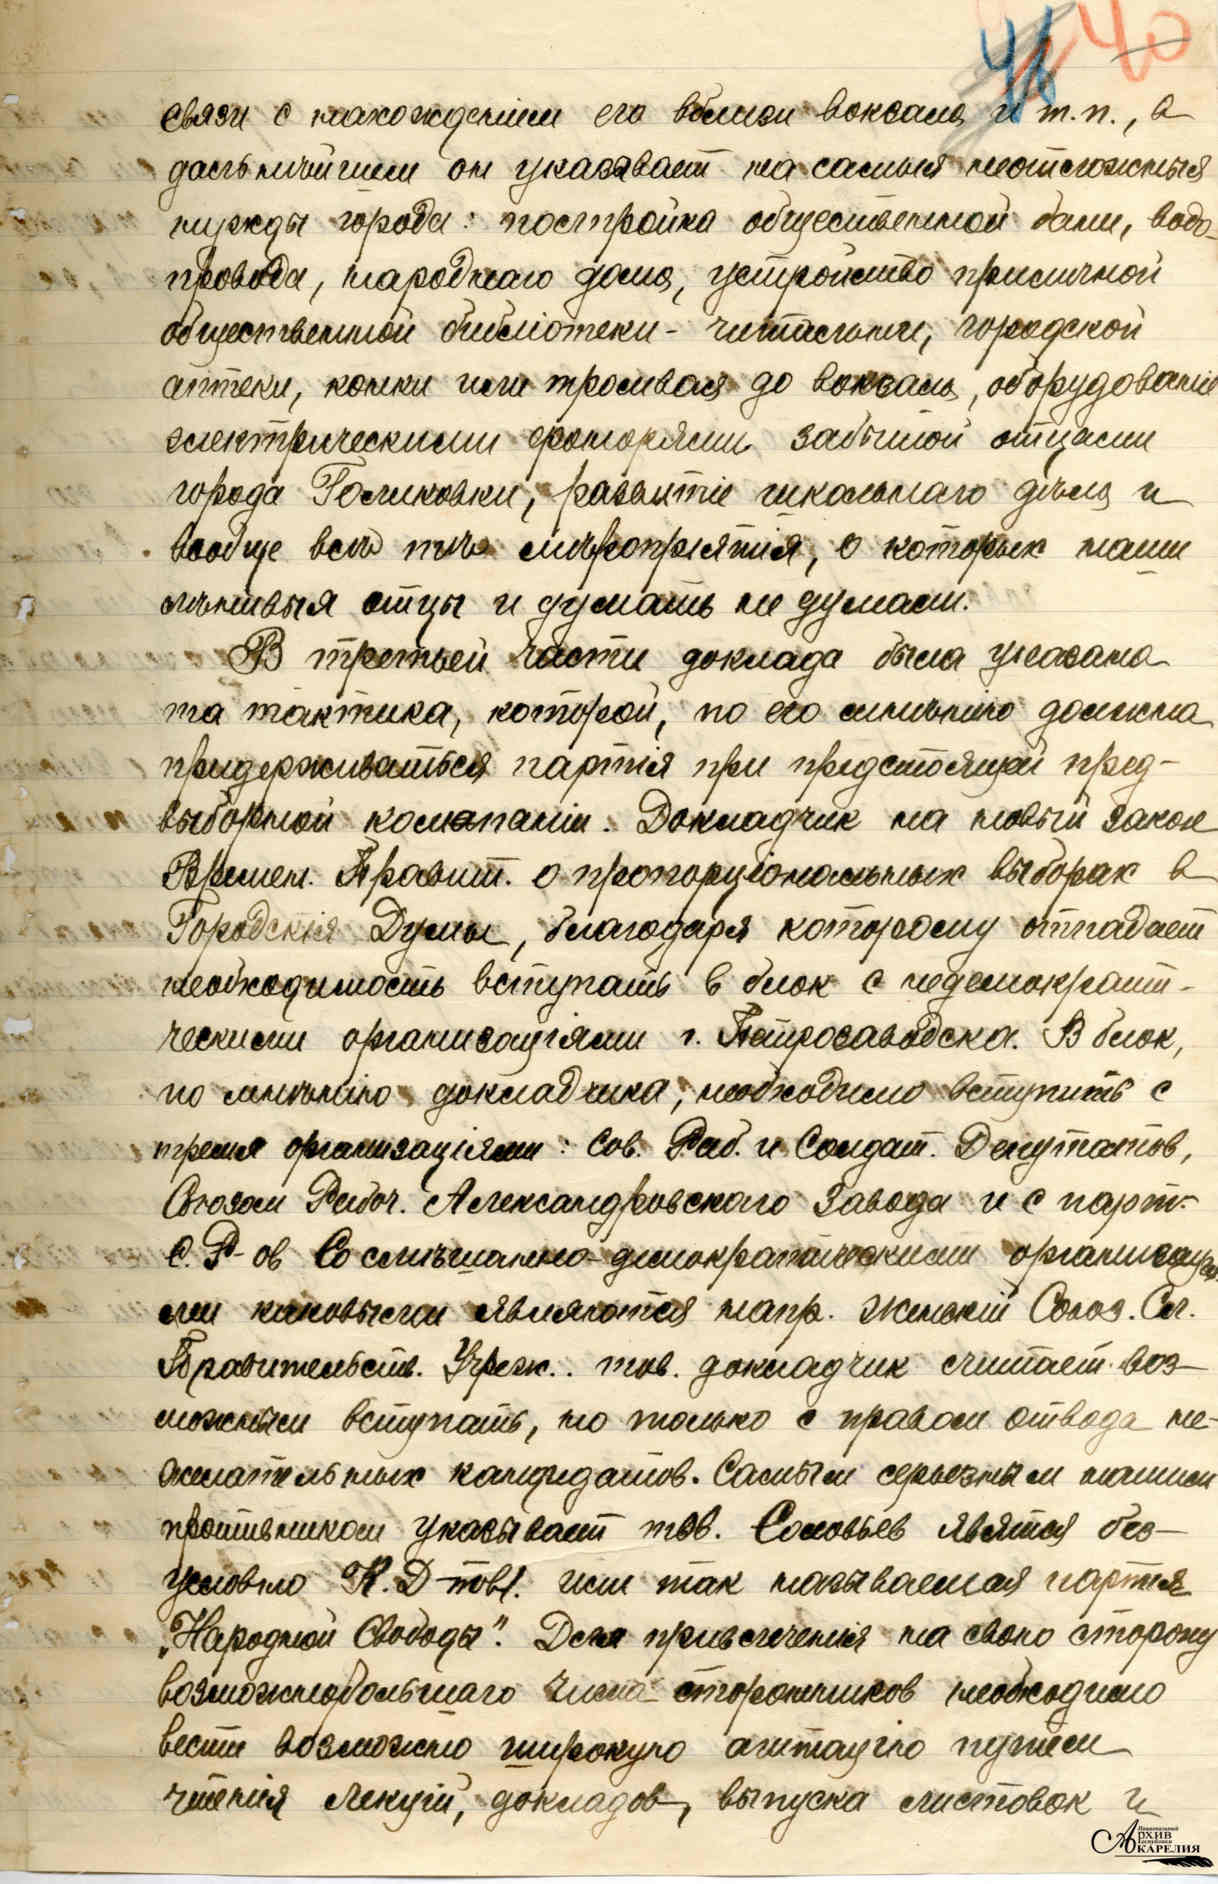 46 40
связи с нахожденiем его вблизи вокзала и т.п., в
дальнѣйшем он указывает на самыя неотложныя
нужды города: постройка общественной бани, водо-
провода, народнаго дома, устройство приличной
общественной библiотеки-читальни, городской
аптеки, конки или трамвая до вокзала, оборудованiе
электрическими фонарями забытой отцами
города Голиковки, развитiе школьнаго дѣла и
вообще всѣ тѣ мѣропрiятiя, о которых наши
лѣнивыя отцы и думать не думали.
В третьей части доклада была указана
та тактика, которой, по его мнѣнiю должна
придерживаться партiя при предстоящей пред-
выборной компанiи. Докладчик на новый закон
Времен. Правит. о пропорцiональных выборах в
Городскiя Думы, благодаря которому отпадает
необходимость вступать в блок с недемократи-
ческими организацiями г. Петрозаводска. В блок,
по мнѣнiю докладчика, необходимо вступить с
тремя организацiями: Сов. Раб. и Солдат. Депутатов,
Союзом Рабоч. Александровского Завода и с парт.
С.Р-ов Со смѣшанно-демократическими организацiя-
ми каковыми являются напр. Женскiй Союз. Сл.
Правительств. Учреж.. тов. докладчик считает воз-
можным вступать, но только с правом отвода не-
желательных кандидатов. Самым серьезным нашим
противником указывает тов. Соловьев явятся без-
условно К.Д-товъ. или так называемая партiя
„Народной Свободы". Для привлеченiя на свою сторону
возможнобольшаго числа сторонников необходимо
вести возможно широкую агитацiю путем
чтенiя лекцiй, докладов, выпуска листовок и
Национальный
Архив
Республики
Карелия